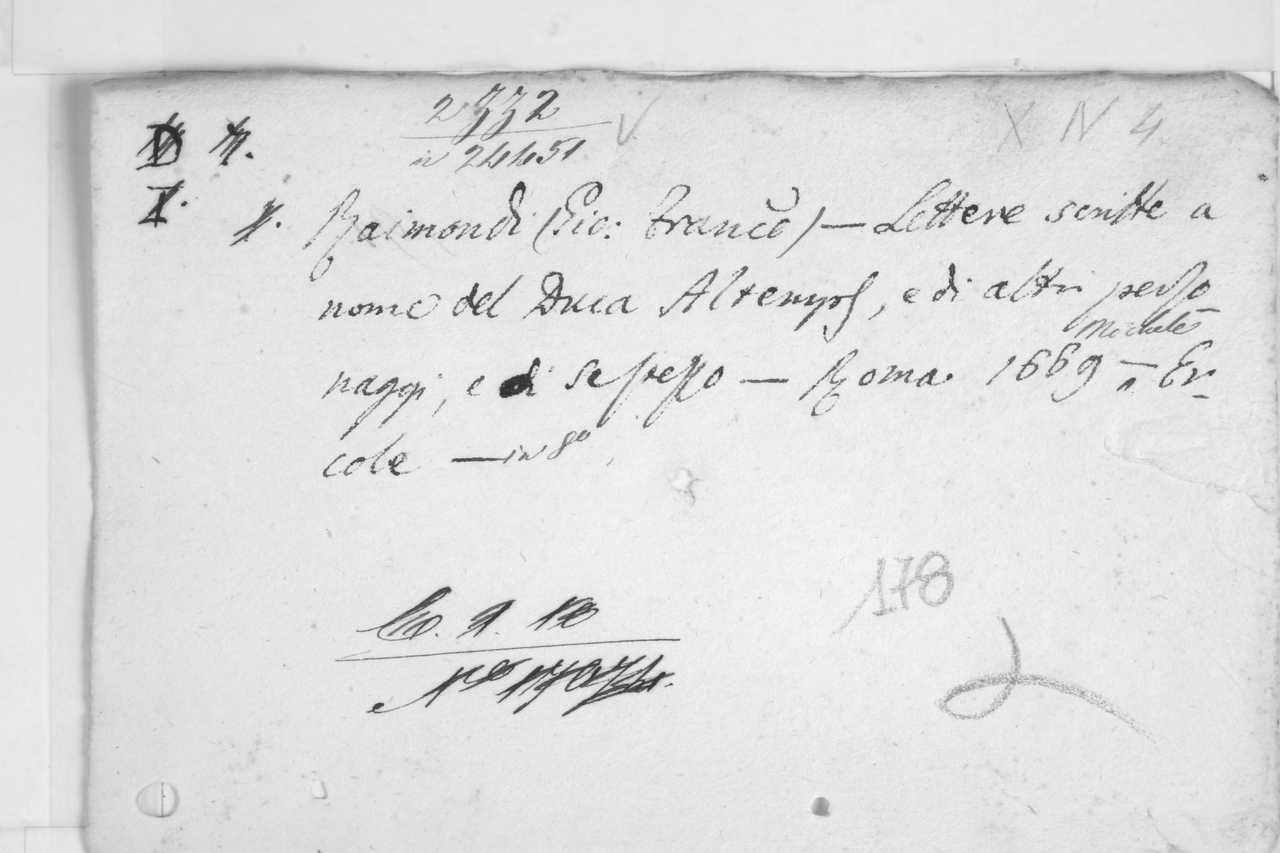 2772
in 24451
X N 4
Raimondi (Gio: Francᵒ) — Lettere scritte a
nome del Duca Altemps, e di altri perso
naggi, e di se stesso — Roma 1669 — Michele Er-
cole — in 8º
178
2